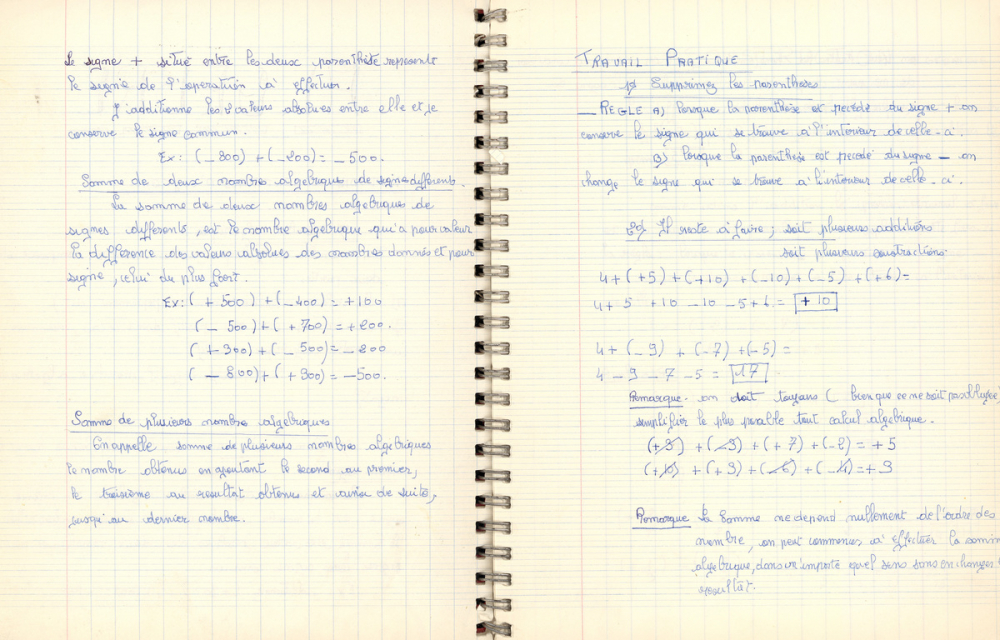 Le signe + situé entre les deux parenthèse represente
le signe de l'operation à effectuer.
J'additionne les valeurs absolues entre elle et je
conserve le signe commun.
Ex: (_ 300) + (_ 200) = _ 500.
Somme de deux nombres algebriques de signes differents.
La somme de deux nombres algebriques de
signes differents, est le nombre algebrique qui a pour valeur
la difference des valeurs absolues des nombres donnés et pour
signe, celui du plus fort.
Ex: (+ 500) + (_ 400) = +100
(_ 500) + (+ 700) = +200.
(+ 300) + (_ 500) = _ 200
(_ 800) + (+ 300) = _ 500.
Somme de plusieurs nombres algebriques
On appelle somme de plusieurs nombres algebriques
le nombre obtenus en ajoutant le second au premier,
le troisième au resultat obtenu et ainsi de suite,
jusqu'au dernier nombre.
TRAVAIL PRATIQUE
1) Supprimez les parenthèses
_ REGLE A) lorsque la parenthèse est precedé du signe + on
conserve le signe qui se trouve à l'interieur de celle-ci.
B) lorsque la parenthèse est precedé du signe _ on
change le signe qui se trouve à l'interieur de celle-ci.
2) Il reste à faire, soit plusieurs additions
soit plusieurs soustractions.
4 + (+5) + (+10) + (_10) + (_5) + (+6) =
4 + 5 + 10 _ 10 _ 5 + 6 = + 10
4 + (_ 9) + (_7) + (_5) =
4 _ 9 _ 7 _ 5 = 17
Remarque. on doit toujours ( bien que ce ne soit pas
simplifier le plus possible tout calcul algebrique.
(+3) + (_3) + (+ 7) + (_2) = + 5
(+10) + (+9) + (_6) + (_4) = + 9
Remarque la somme ne depend nullement de l'ordre des
nombre, on peut commencer à effectuer la somme
algebrique, dans n'importe quel sens sans en changer
resultat.